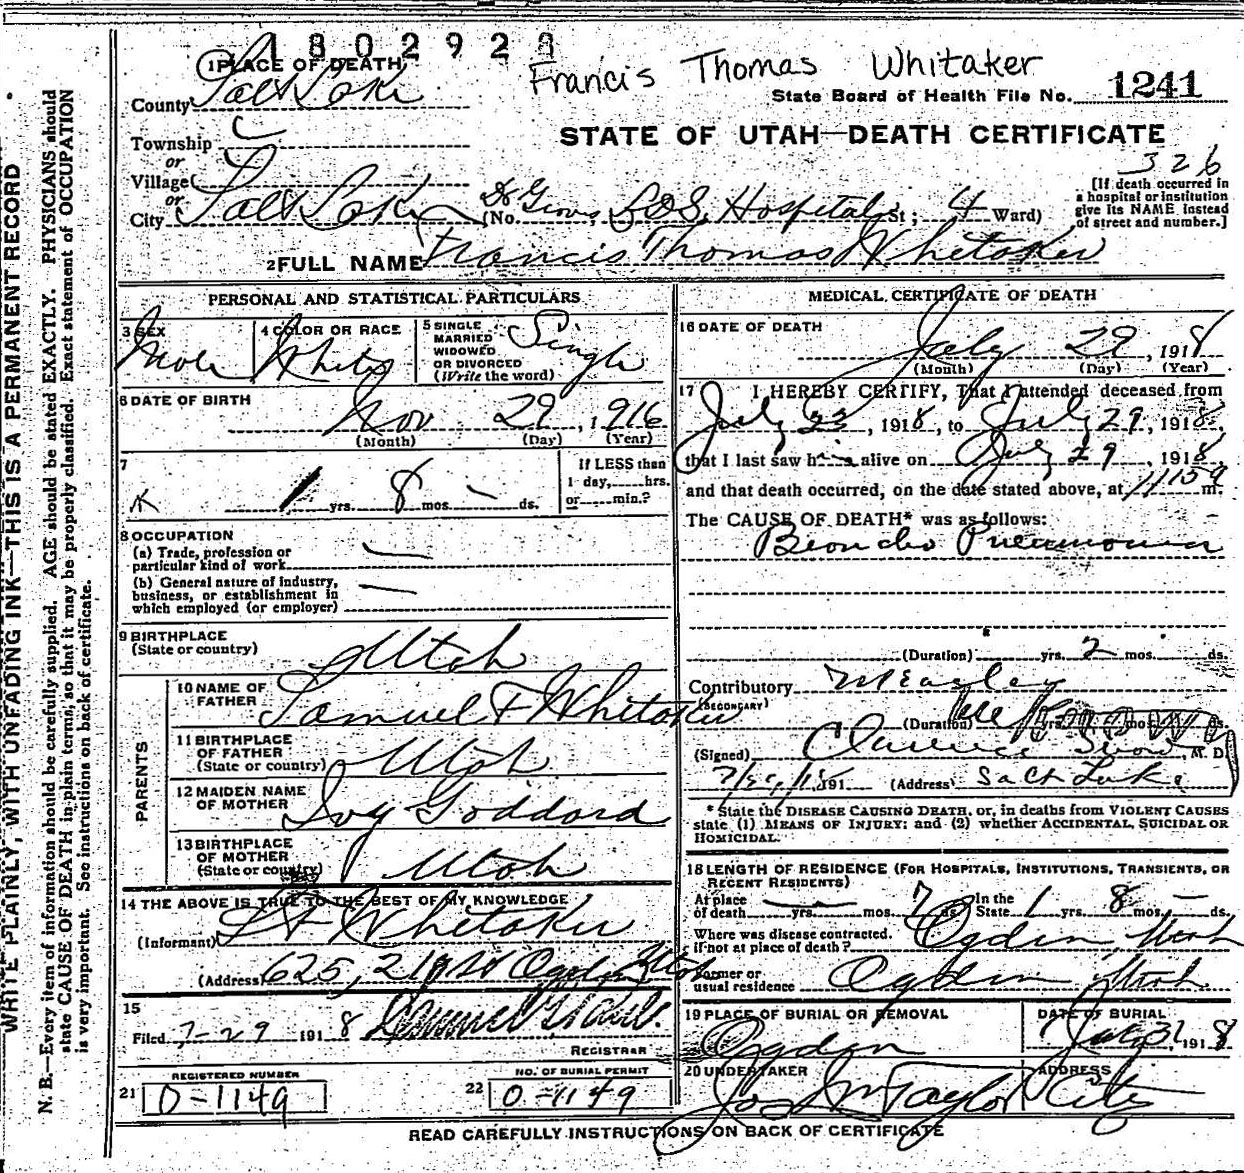 1802923
Francis Thomas Whitaker
1 PLACE OF DEATH
County Salt Lake
State Board of Health File No. 1241
STATE OF UTAH—DEATH CERTIFICATE
Township
or
Village
or
326
City Salt Lake (No. Dr Groves LDS Hospital St; 4 Ward)
[If death occurred in a hospital or institution give its NAME instead of street and number.]
2 FULL NAME Francis Thomas Whitaker
PERSONAL AND STATISTICAL PARTICULARS
3 SEX Male
4 COLOR OR RACE White
5 SINGLE MARRIED WIDOWED OR DIVORCED (Write the word) Single
6 DATE OF BIRTH Nov 29, 1916
(Month) (Day) (Year)
7 1 yrs. 8 mos. — ds.
If LESS than 1 day, hrs. or min.?
8 OCCUPATION
(a) Trade, profession or particular kind of work —
(b) General nature of industry, business, or establishment in which employed (or employer) —
9 BIRTHPLACE (State or country) Utah
PARENTS
10 NAME OF FATHER Samuel F Whitaker
11 BIRTHPLACE OF FATHER (State or country) Utah
12 MAIDEN NAME OF MOTHER Ivy Goddard
13 BIRTHPLACE OF MOTHER (State or country) Utah
14 THE ABOVE IS TRUE TO THE BEST OF MY KNOWLEDGE
(Informant) S F Whitaker
(Address) 625, 21st Ogden Utah
15
Filed 7-29 1918
REGISTRAR
REGISTERED NUMBER
21 0-1149
NO. OF BURIAL PERMIT
22 0-1149
MEDICAL CERTIFICATE OF DEATH
16 DATE OF DEATH July 29, 1918
(Month) (Day) (Year)
17 I HEREBY CERTIFY, That I attended deceased from
July 23, 1918, to July 29, 1918,
that I last saw him alive on July 29, 1918
and that death occurred, on the date stated above, at 1115 m.
The CAUSE OF DEATH* was as follows:
Broncho Pneumonia
(Duration) yrs. 2 mos. ds.
Contributory Measles
(SECONDARY)
(Duration) yrs. mos. ds.
(Signed) Clarence Snow, M. D.
191 (Address) Salt Lake
*State the DISEASE CAUSING DEATH, or, in deaths from VIOLENT CAUSES
state (1) MEANS OF INJURY; and (2) whether ACCIDENTAL, SUICIDAL OR
HOMICIDAL.
18 LENGTH OF RESIDENCE (FOR HOSPITALS, INSTITUTIONS, TRANSIENTS, OR
RECENT RESIDENTS)
At place of death — yrs. mos. 7 ds. In the State 1 yrs. 8 mos. — ds.
Where was disease contracted, if not at place of death? Ogden, Utah
Former or usual residence Ogden Utah.
19 PLACE OF BURIAL OR REMOVAL Ogden
DATE OF BURIAL July 31, 1918
20 UNDERTAKER Jos Wm Taylor
ADDRESS City
READ CAREFULLY INSTRUCTIONS ON BACK OF CERTIFICATE
WRITE PLAINLY, WITH UNFADING INK—THIS IS A PERMANENT RECORD
N. B.—Every item of information should be carefully supplied. AGE should be stated EXACTLY. PHYSICIANS should
state CAUSE OF DEATH in plain terms, so that it may be properly classified. Exact statement of OCCUPATION
is very important. See instructions on back of certificate.